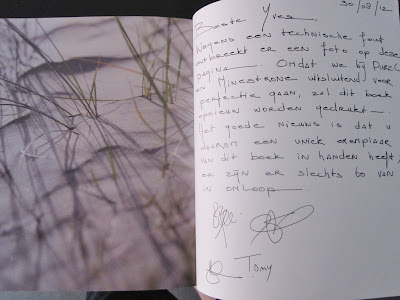 30/08/12
Beste Yves.
Wegens een technische fout
ontbreekt er een foto op deze
pagina. Omdat we bij PurcC
en Minestrone uitsluitend voor
perfectie gaan, zal dit boek
opnieuw worden gedrukt.
Het goede nieuws is dat u
daarom een uniek exemplaar
van dit boek in handen heeft,
er zijn er slechts 60 van
in omloop
Tomy